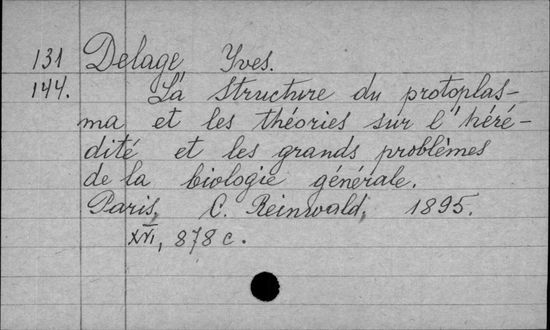 131 Delage Yves.
144. La structure du protoplas-
ma et les théories sur l'héré-
dité et les grands problèmes
de la biologie générale.
Paris, C. Reinwald, 1895.
XVI, 878 c.